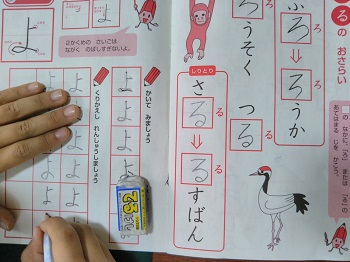 る の おさらい
ふろ
ろ
⇩
ろうか
ろ
ろうそく
つる
る
しりとり
さる
る
⇩
るすばん
る
かいて みましょう
よ
よ
よ
よ
くりかえし れんしゅうしましょう
よ よ
よ よ
よ よ
よ よ
2かくめの さいごは
ながく のばしすぎないよ。
よ